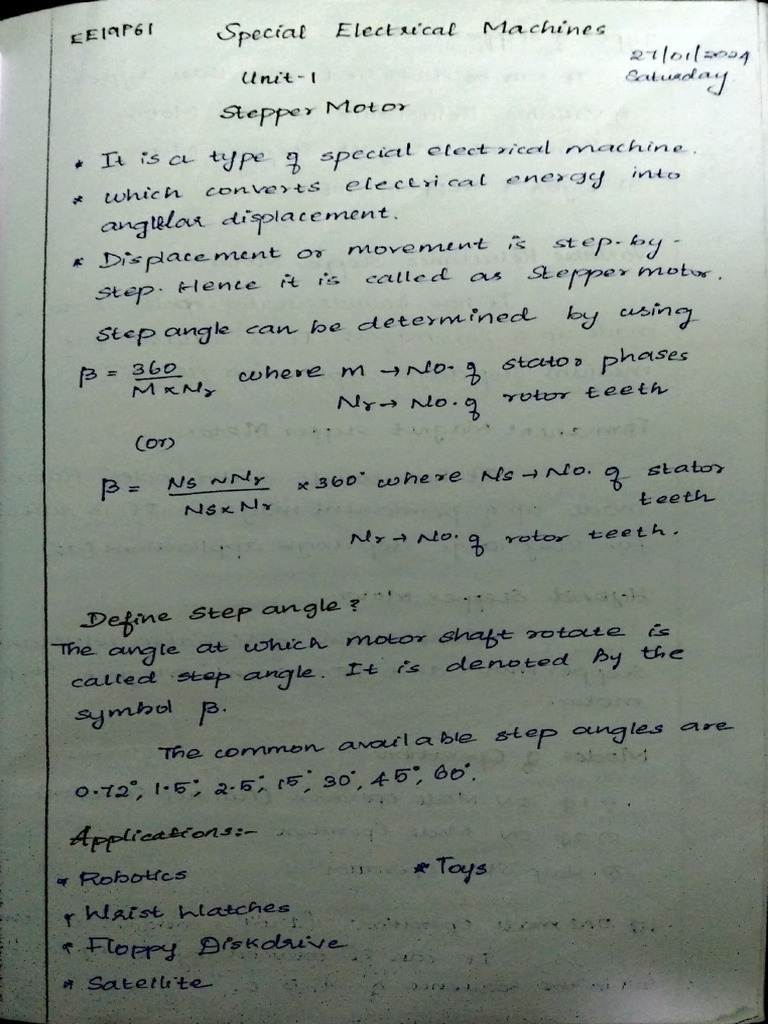 EE19P61 Special Electrical Machines
27/01/2024
Saturday
Unit-1
Stepper Motor
* It is a type of special electrical machine.
* which converts electrical energy into
angular displacement.
* Displacement or movement is step-by-
step. Hence it is called as Stepper motor.
Step angle can be determined by using
β = 360 / M×Nr where m → No. of stator phases
Nr → No. of rotor teeth
(or)
β = Ns ~ Nr / Ns×Nr × 360° where Ns → No. of stator
teeth
Nr → No. of rotor teeth.
Define Step angle?
The angle at which motor shaft rotate is
called step angle. It is denoted By the
symbol β.
The common available step angles are
0.72°, 1.5°, 2.5°, 15°, 30°, 45°, 60°.
Applications:-
* Robotics * Toys
* Wrist Watches
* Floppy Diskdrive
* Satellite